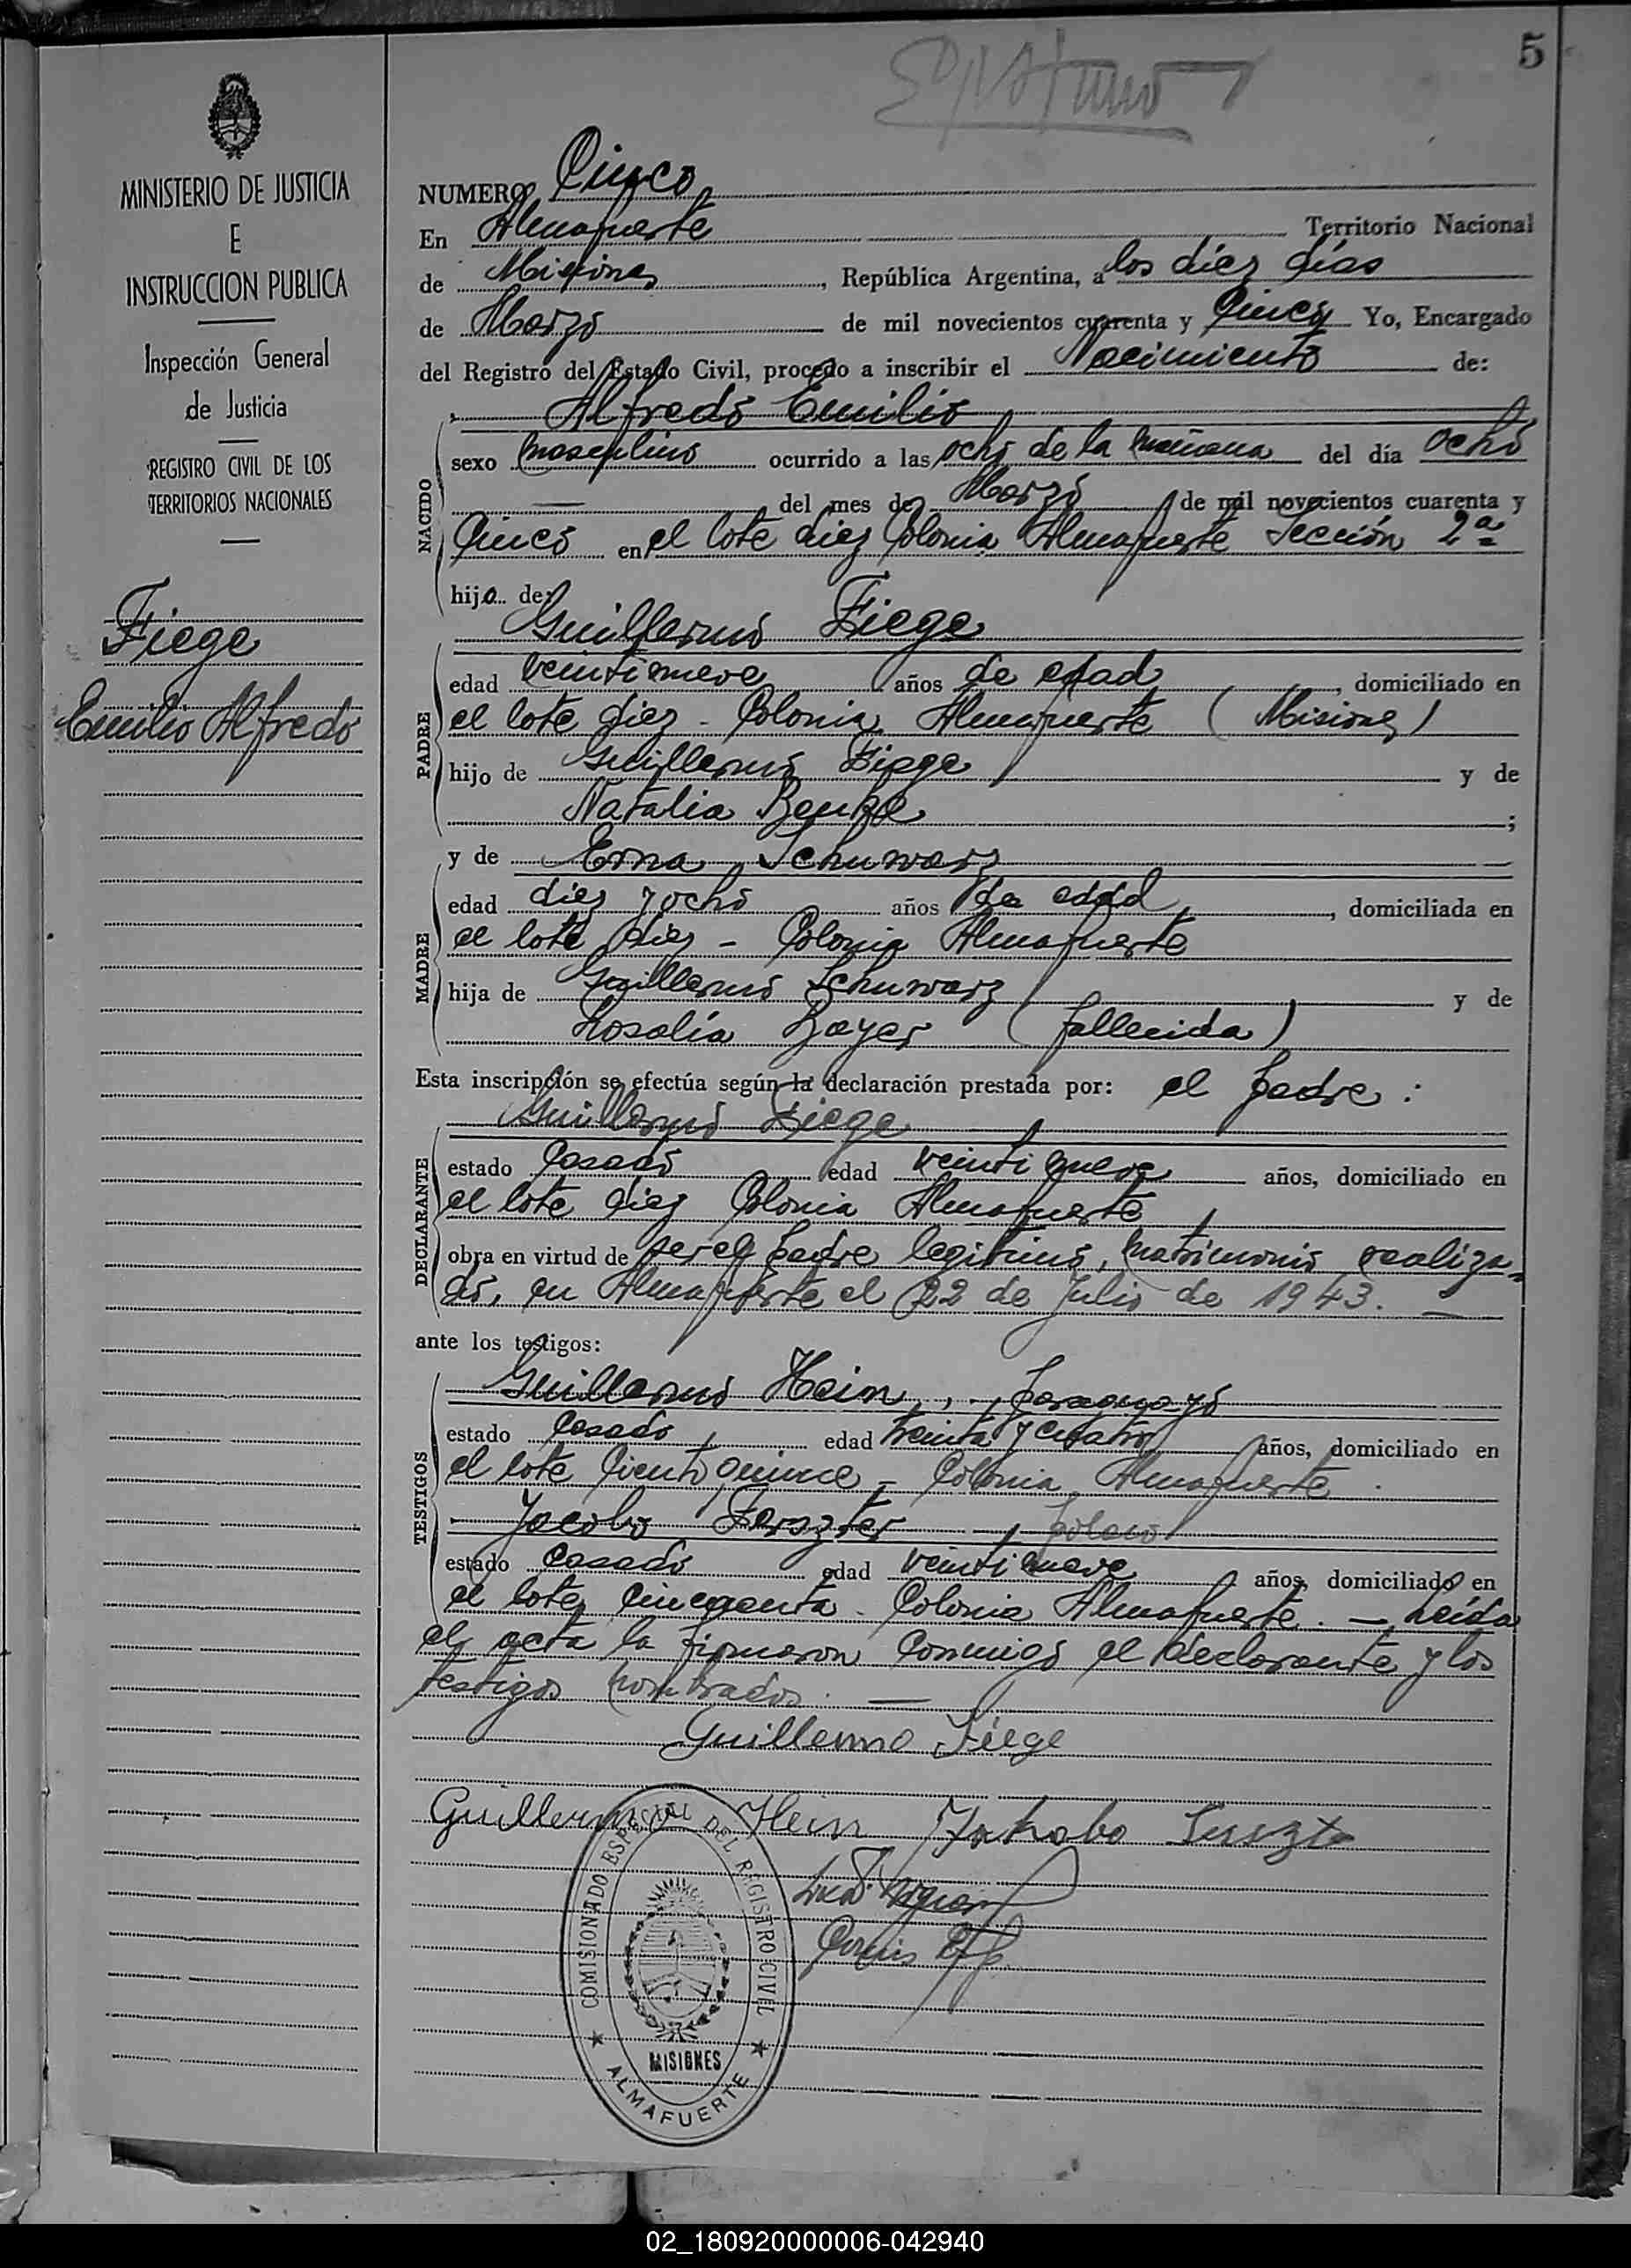 5
MINISTERIO DE JUSTICIA
E
INSTRUCCION PUBLICA
Inspección General
de Justicia
REGISTRO CIVIL DE LOS
TERRITORIOS NACIONALES
Fiege
Emilio Alfredo
NUMERO Cinco
En Almafuerte Territorio Nacional
de Misiones, República Argentina, a los diez días
de Marzo de mil novecientos cuarenta y Cinco Yo, Encargado
del Registro del Estado Civil, procedo a inscribir el Nacimiento de:
Alfredo Emilio
NACIDO
sexo masculino ocurrido a las ocho de la mañana del día ocho
— del mes de Marzo de mil novecientos cuarenta y
Cinco en el lote diez Colonia Almafuerte Sección 2ª
hijo de:
Guillermo Fiege
PADRE
edad veintinueve años de edad, domiciliado en
el lote diez - Colonia Almafuerte (Misiones)
hijo de Guillermo Fiege y de
Natalia ;
y de Erna Schuwarz
MADRE
edad diez y ocho años de edad, domiciliada en
el lote diez - Colonia Almafuerte
hija de Guillermo Schuwarz y de
Rosalía Bayer (fallecida)
Esta inscripción se efectúa según la declaración prestada por: el padre:
Guillermo Fiege
DECLARANTE
estado Casado edad veintinueve años, domiciliado en
el lote diez Colonia Almafuerte
obra en virtud de ser el padre legitimo, matrimonio realiza-
do, en Almafuerte el 22 de Julio de 1943. —
ante los testigos:
TESTIGOS
Guillermo Hein, paraguayo
estado Casado edad treinta y cuatro años, domiciliado en
el lote Ciento quince - Colonia Almafuerte.
Jacobo polaco
estado Casado edad veintinueve años, domiciliado en
el lote cincuenta. Colonia Almafuerte. — Leída
el acta la firmaron conmigo el declarante y los
testigos nombrados. —
Guillermo Fiege
Guillermo Hein Jakobo
COMISIONADO ESPECIAL DEL REGISTRO CIVIL
MISIONES
★ ALMAFUERTE ★
02_180920000006-042940